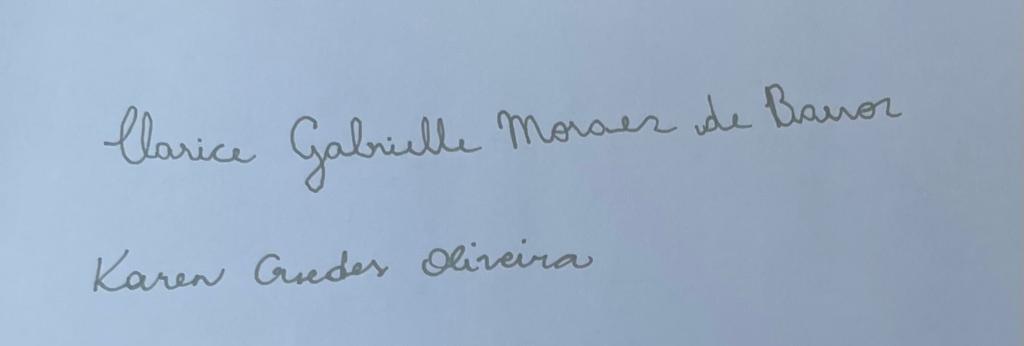 Clarice Gabrielle Moraes de Barros
Karen Guedes Oliveira